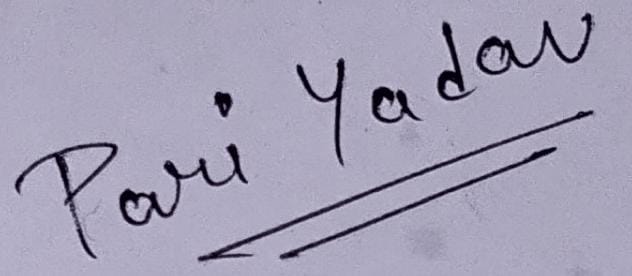 Pari Yadav